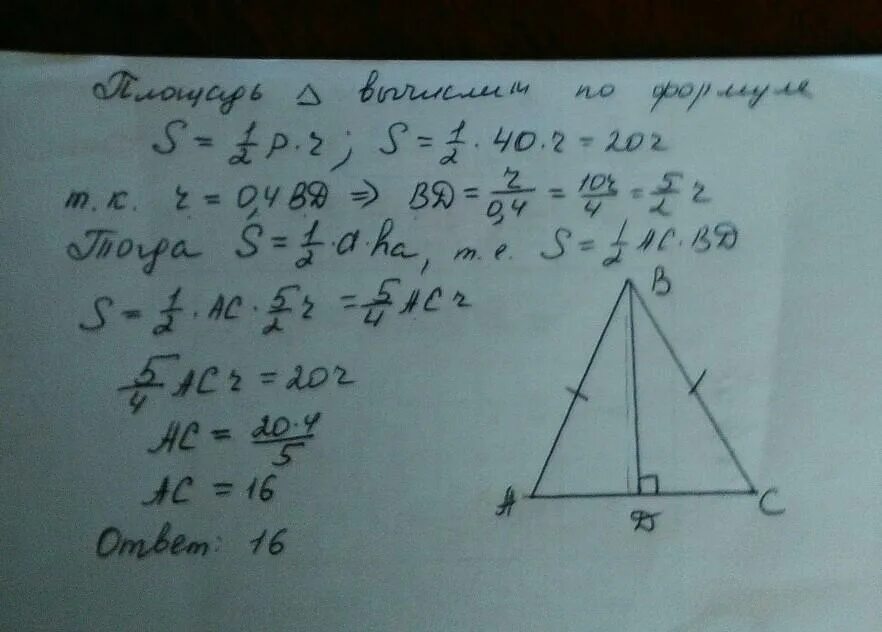 Площадь Δ вычислим по формуле
S = 1/2 P · r ; S = 1/2 · 40 · r = 20r
т.к. r = 0,4 BD ⇒ BD = r/0,4 = 10r/4 = 5/2 r
Тогда S = 1/2 · a · ha, т.е. S = 1/2 AC · BD
S = 1/2 · AC · 5/2 r = 5/4 AC r
5/4 AC r = 20r
AC = 20·4/5
AC = 16
Ответ: 16
B
A
D
C